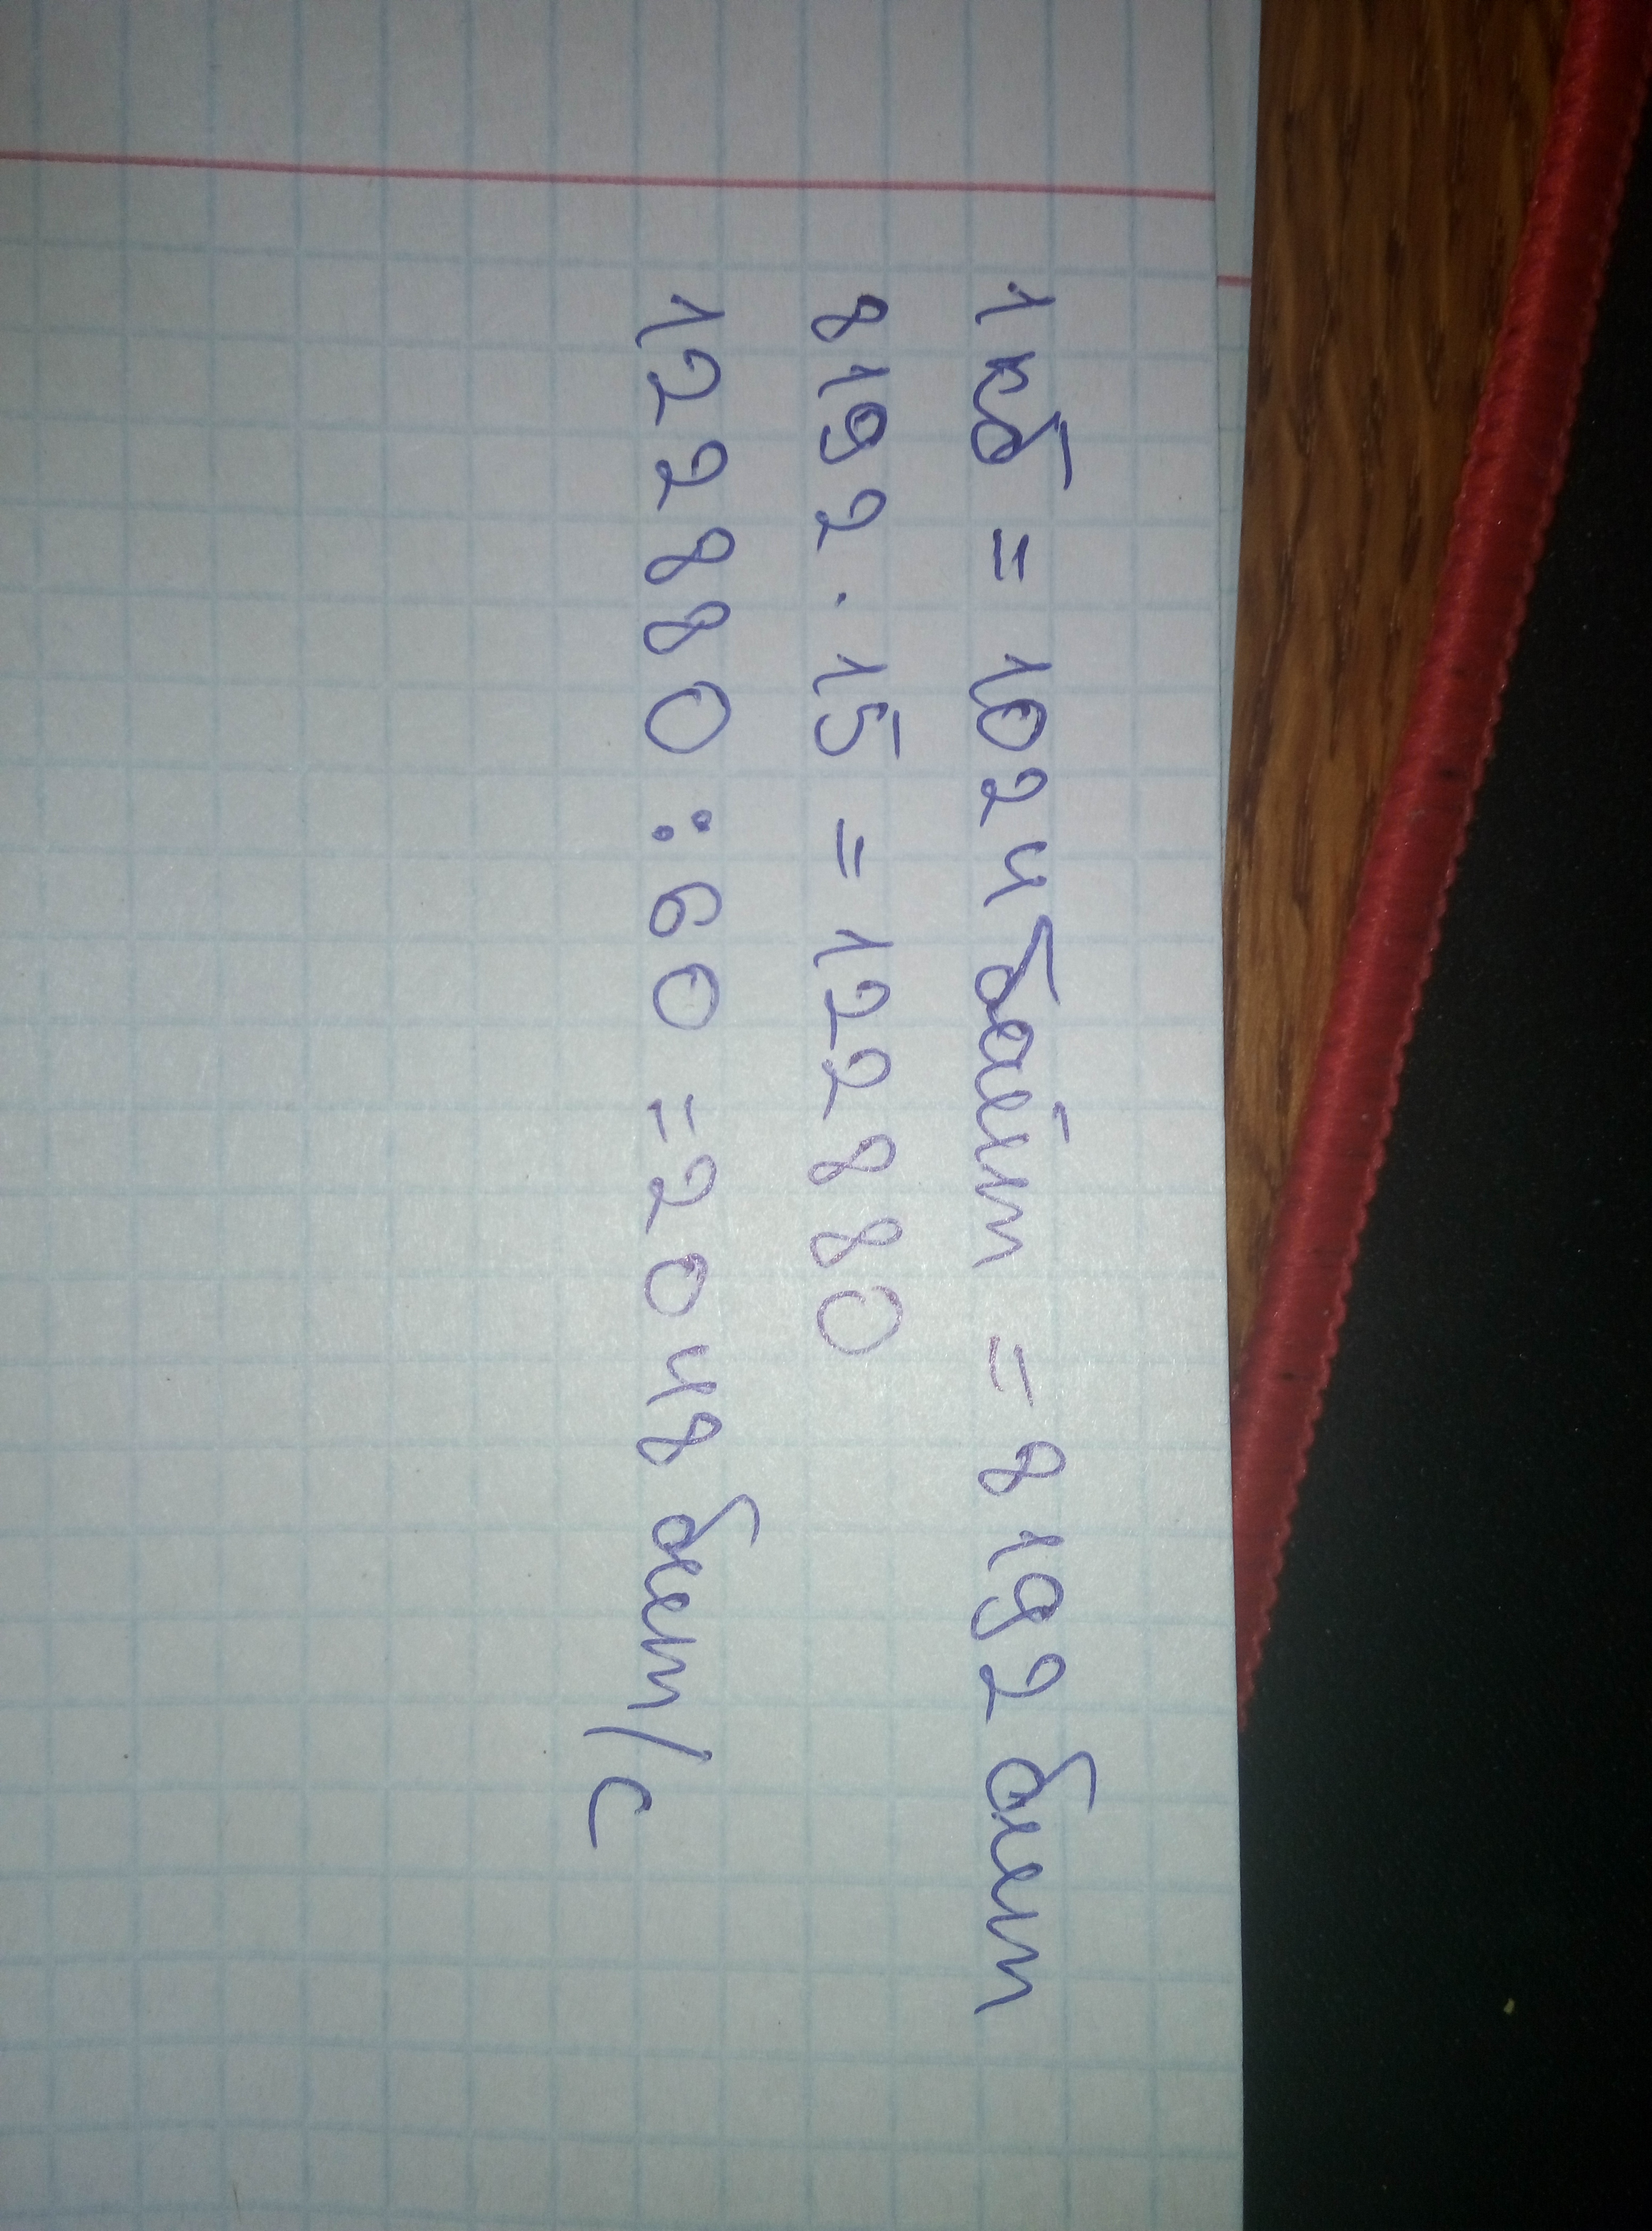 1 кб = 1024 байт = 8192 бит
8192 · 15 = 122880
122880 : 60 = 2048 бит/с